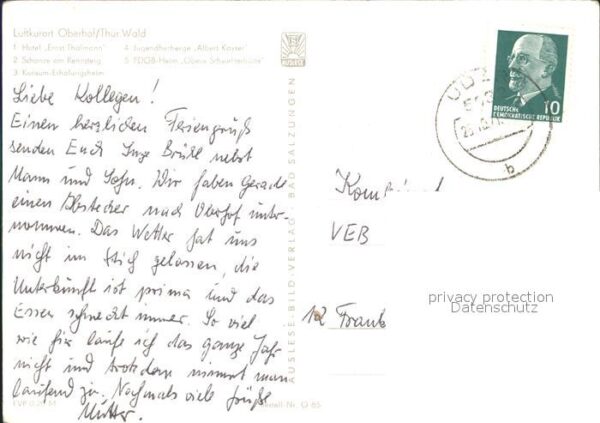 Luftkurort Oberhof/Thür. Wald
1 Hotel „Ernst Thälmann"
2 Schanze am Rennsteig
3 Konsum-Erholungsheim
4 Jugendherberge „Albert Kayser"
5 FDGB-Heim „Obere Schweizerhütte"
Liebe Kollegen!
Einen herzlichen Feriengruß
senden Euch Inge Brühl nebst
Mann und Sohn. Wir haben gerade
einen Abstecher nach Oberhof unter-
nommen. Das Wetter hat uns
nicht im Stich gelassen, die
Unterkunft ist prima und das
Essen schmeckt immer. So viel
wie hier laufe ich das ganze Jahr
nicht und trotzdem nimmt man
laufend zu. Nochmals viele Grüße
AUSLESE-BILD-VERLAG · BAD SALZUNGEN
DEUTSCHE
DEMOKRATISCHE REPUBLIK
10
b
VEB
privacy protection
Datenschutz